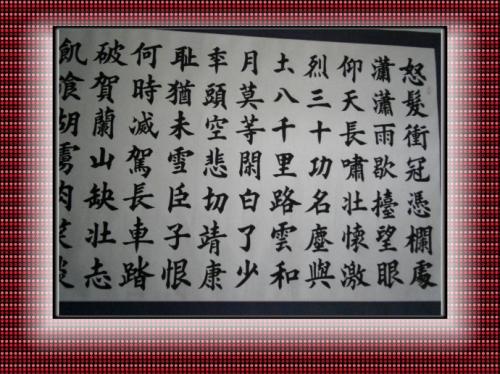 怒髮衝冠憑欄處
瀟瀟雨歇擡望眼
仰天長嘯壯懷激
烈三十功名塵與
土八千里路雲和
月莫等閑白了少
年頭空悲切靖康
耻猶未雪臣子恨
何時滅駕長車踏
破賀蘭山缺壯志
飢飡胡虜肉笑談